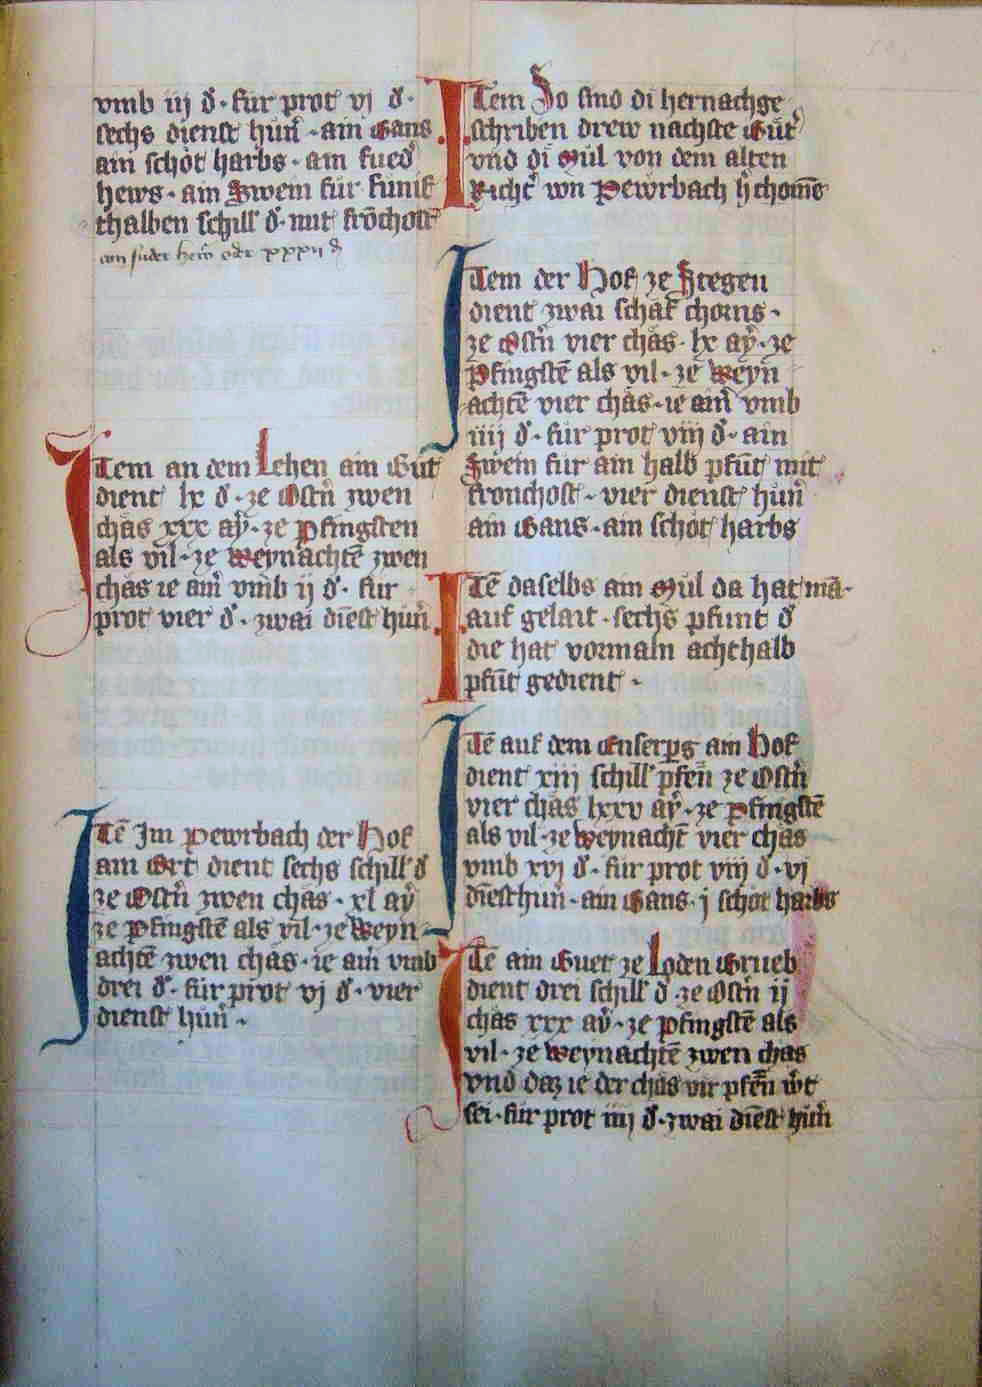 vmb iij d · für prot vj d ·
sechs dienst hün̄ · ain Gans
ain schöt harbs · ain fued̄
hews · ain Swein für funik
thalben schill d · mit frōchost
ain fuder hew oder xxxij d
Item an dem Lehen ain Gut
dient lx d · ze Ostn̄ zwen
chäs xxx aÿ · ze Pfingsten
als vil · ze weynachtē zwen
chäs ie ain̄ vmb ij d · fur
prot vier d · zwai diēst hün̄
Itē Im Pewrbach der Hof
am Ort dient sechs schill d
ze Ostn̄ zwen chäs · xl aÿ
ze Pfingstē als vil · ze Weyn
achtē zwen chäs · ie ain̄ vmb
drei d · für prot vj d · vier
dienst hün̄ ·
Item Jo sind di hernachge
schriben drew nachste Güt
vnd di Mül von dem alten
Richt von Pewrbach h̄ chomē
Item der Hof ze Stegen
dient zwai schäf chorns ·
ze Ostn̄ vier chäs · lx aÿ · ze
Pfingstē als vil · ze Weyn
achtē vier chäs · ie ain̄ vmb
iiij d · für prot viij d · ain
Swein für ain halb pfūt mit
fronchost · vier dienst hün̄
ain Gans · ain schöt harbs
Itē daselbs ain Mül da hat mā
auf gelait · sechs pfunt d
die hat vormaln achthalb
pfūt gedient ·
Itē auf dem Enserperg ain Hof
dient xiij schill pfen̄ ze Ostn̄
vier chäs lxxv aÿ · ze Pfingstē
als vil · ze Weynacht vier chäs
vmb xvj d · für prot viij d · vj
diēsthün̄ · ain Gans · j schöt harbs
Itē ain Guet ze Loden Grueb
dient drei schill d ze Ostn̄ ij
chäs xxx aÿ · ze pfingstē als
vil · ze weynachtē zwen chäs
vnd daz ie der chäs vir pfen̄ w̄t
sei · für prot iiij d · zwai diēst hün̄